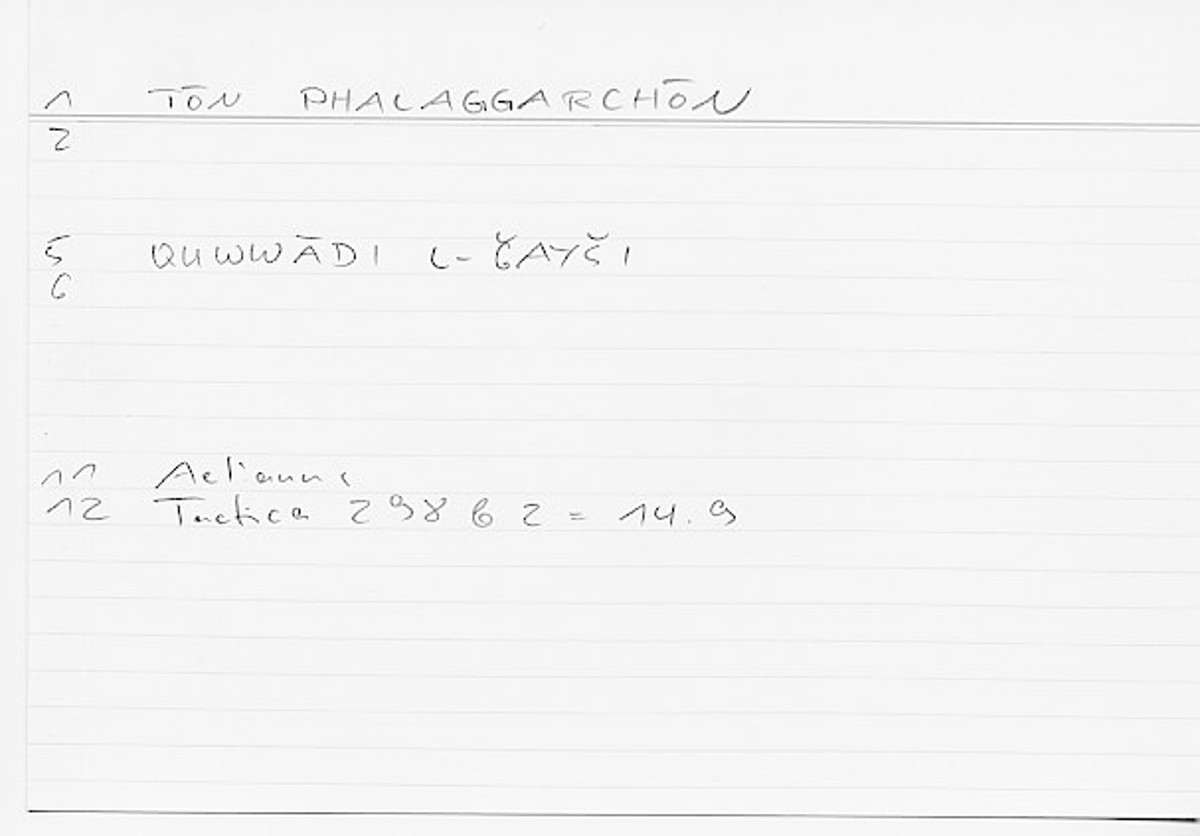 1 TŌN PHALAGGARCHŌN
2
5 QUWWĀDI L-ǦAYŠI
6
11 Aelianus
12 Tactica 298 6 2 = 14.9